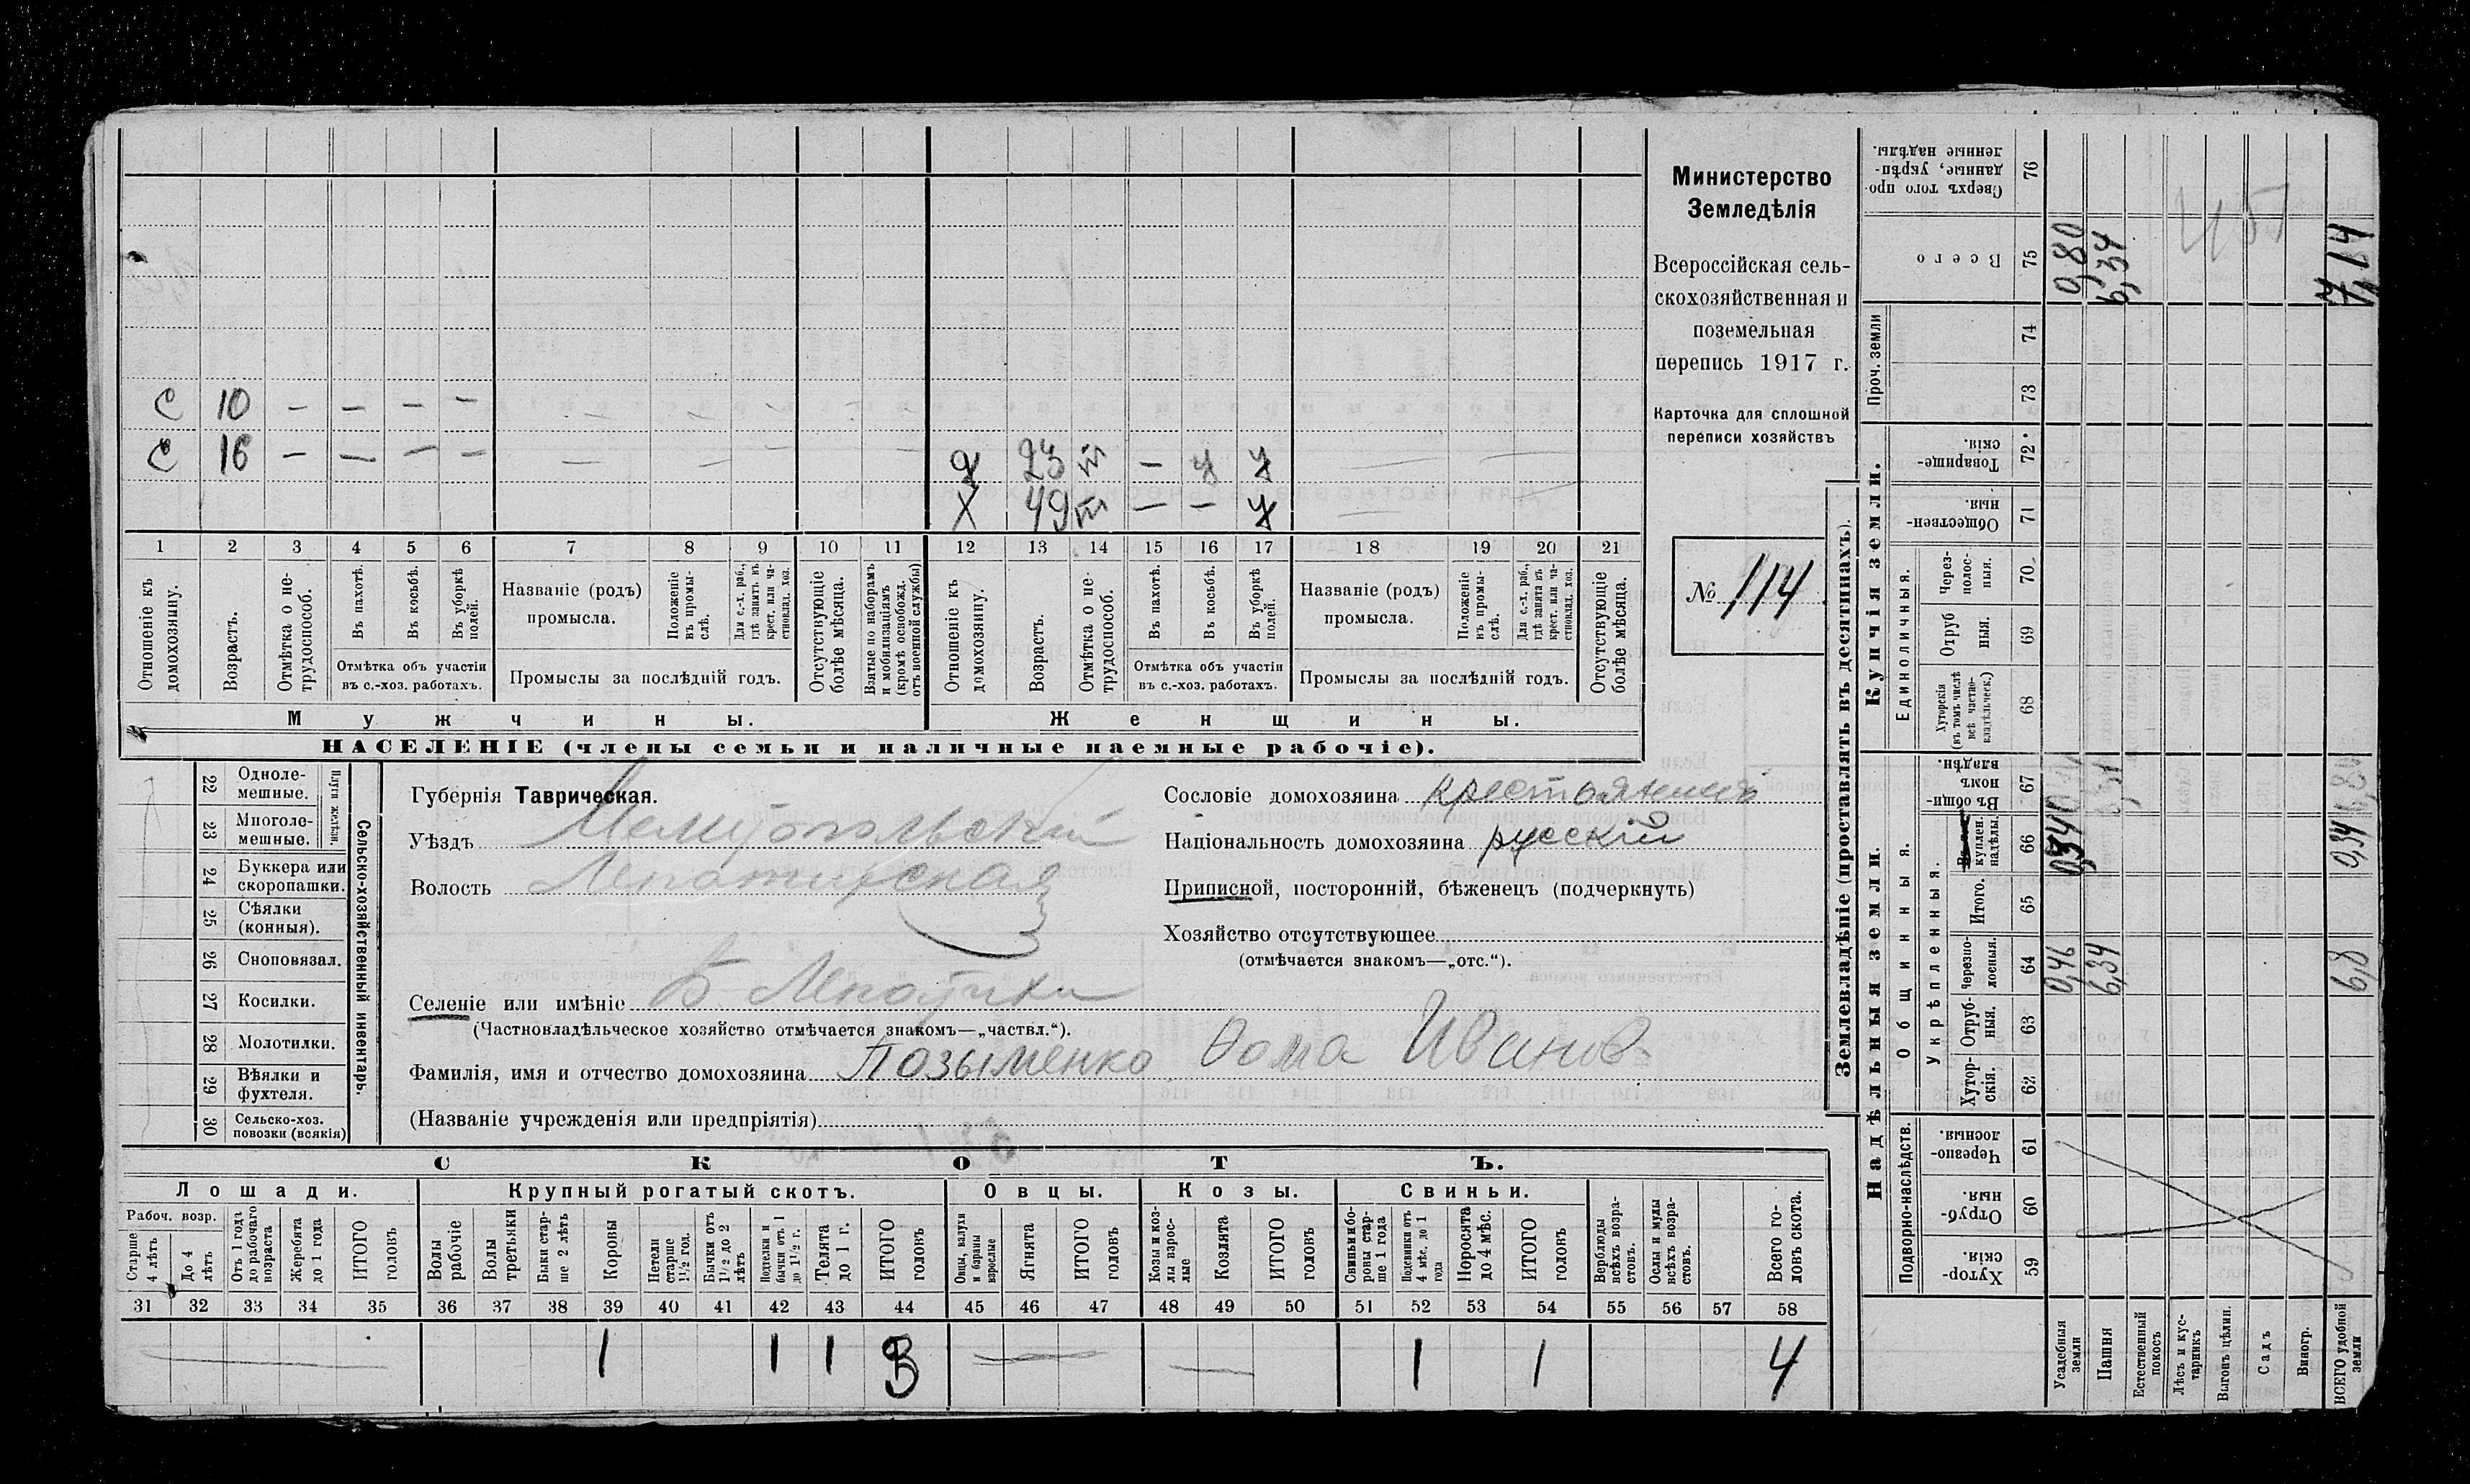 Министерство
Земледѣлія
Всероссійская сель-
скохозяйственная и
поземельная
перепись 1917 г.
Карточка для сплошной
переписи хозяйствъ
№ 114
С 10 — — — — — — — —
С 16 — — — — — — — —
д 23 — у у
Х 49 — — у
1 2 3 4 5 6 7 8 9 10 11 12 13 14 15 16 17 18 19 20 21
Отношеніе къ домохозяину.
Возрастъ.
Отмѣтка о не-трудоспособ.
Въ пахотѣ.
Въ косьбѣ.
Въ уборкѣ полей.
Отмѣтка объ участіи
въ с.-хоз. работахъ.
Названіе (родъ)
промысла.
Положеніе въ промы-слѣ.
Для с.-х. раб., гдѣ занятъ въ крест. или ча-стновлад. хоз.
Промыслы за послѣдній годъ.
Отсутствующіе болѣе мѣсяца.
Взятые по наборамъ и мобилизаціямъ (кромѣ освобожд. отъ военной службы)
Отношеніе къ домохозяину.
Возрастъ.
Отмѣтка о не-трудоспособ.
Въ пахотѣ.
Въ косьбѣ.
Въ уборкѣ полей.
Отмѣтка объ участіи
въ с.-хоз. работахъ.
Названіе (родъ)
промысла.
Положеніе въ промы-слѣ.
Для с.-х. раб., гдѣ занята въ крест. или ча-стновлад. хоз.
Промыслы за послѣдній годъ.
Отсутствующіе болѣе мѣсяца.
Мужчины. Женщины.
НАСЕЛЕНІЕ (члены семьи и наличные наемные рабочіе).
Сельско-хозяйственный инвентарь.
Плуги желѣзн.
22 Одноле-мешные.
23 Многоле-мешные.
24 Буккера или скоропашки.
25 Сѣялки (конныя).
26 Сноповязал.
27 Косилки.
28 Молотилки.
29 Вѣялки и фухтеля.
30 Сельско-хоз. повозки (всякія)
Губернія Таврическая.
Уѣздъ Мелитопольскій
Волость
Селеніе или имѣніе
(Частновладѣльческое хозяйство отмѣчается знакомъ—„частвл.“).
Фамилія, имя и отчество домохозяина Позыменко Фома Иванов
(Названіе учрежденія или предпріятія)
Сословіе домохозяина крестьянинъ
Національность домохозяина русскій
Приписной, посторонній, бѣженецъ (подчеркнуть)
Хозяйство отсутствующее
(отмѣчается знакомъ—„отс.“).
СКОТЪ.
Лошади. Крупный рогатый скотъ. Овцы. Козы. Свиньи.
Рабоч. возр.
Старше 4 лѣтъ
До 4 лѣтъ
Отъ 1 года до рабочаго возраста
Жеребята до 1 года
ИТОГО головъ
Волы рабочіе
Волы третьяки
Быки стар-ше 2 лѣтъ
Коровы
Нетели старше 1 1/2 год.
Бычки отъ 1 1/2 до 2 лѣтъ
Подтелки и бычки отъ 1 до 1 1/2 г.
Телята до 1 г.
ИТОГО головъ
Овцы, валухи и бараны взрослые
Ягнята
ИТОГО головъ
Козы и коз-лы взрос-лые
Козлята
ИТОГО головъ
Свиньи и бо-ровы стар-ше 1 года
Подсвинки отъ 4 мѣс. до 1 года
Поросята до 4 мѣс.
ИТОГО головъ
Верблюды всѣхъ возра-стовъ.
Ослы и мулы всѣхъ возра-стовъ.
Всего го-ловъ скота.
31 32 33 34 35 36 37 38 39 40 41 42 43 44 45 46 47 48 49 50 51 52 53 54 55 56 57 58
1 1 1 3 — — 1 1 4
Землевладѣніе (проставлять въ десятинахъ).
Надѣльныя земли. Купчія земли.
Подворно-наслѣдств.
Общинныя.
Укрѣпленныя.
Единоличныя.
Проч. земли
Хутор-скія. 59
Отруб-ныя. 60
Черезпо-лосныя. 61
Хутор-скія. 62
Отруб-ныя. 63
Черезпо-лосныя. 64
Итого. 65
куплен. надѣлы. 66
Въ общин-номъ владѣн. 67
Хуторскія (въ томъ числѣ всѣ частно-владѣльческ.) 68
Отруб ныя. 69
Через-полос-ныя. 70
Обществен-ныя. 71
Товарище-скія. 72
73
74
Всего 75
Сверхъ того про-данные, укрѣп-ленные надѣлы. 76
Усадебныя земли 0,46 0,34 0,80
Пашня 6,34 6,34
Естественный покосъ
Лѣсъ и кус-тарникъ
Выгонъ цѣлин.
Садъ
Виногр.
ВСЕГО удобной земли 6,8 0,34 7,14